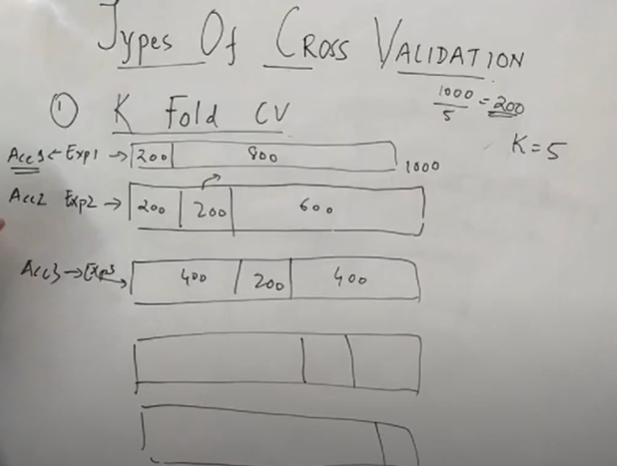 Types Of Cross Validation
1000/5 = 200
① K Fold CV
K=5
Acc1 ← Exp1 → 200 800 1000
Acc2 Exp2 → 200 200 600
Acc3 → Exp3 → 400 200 400